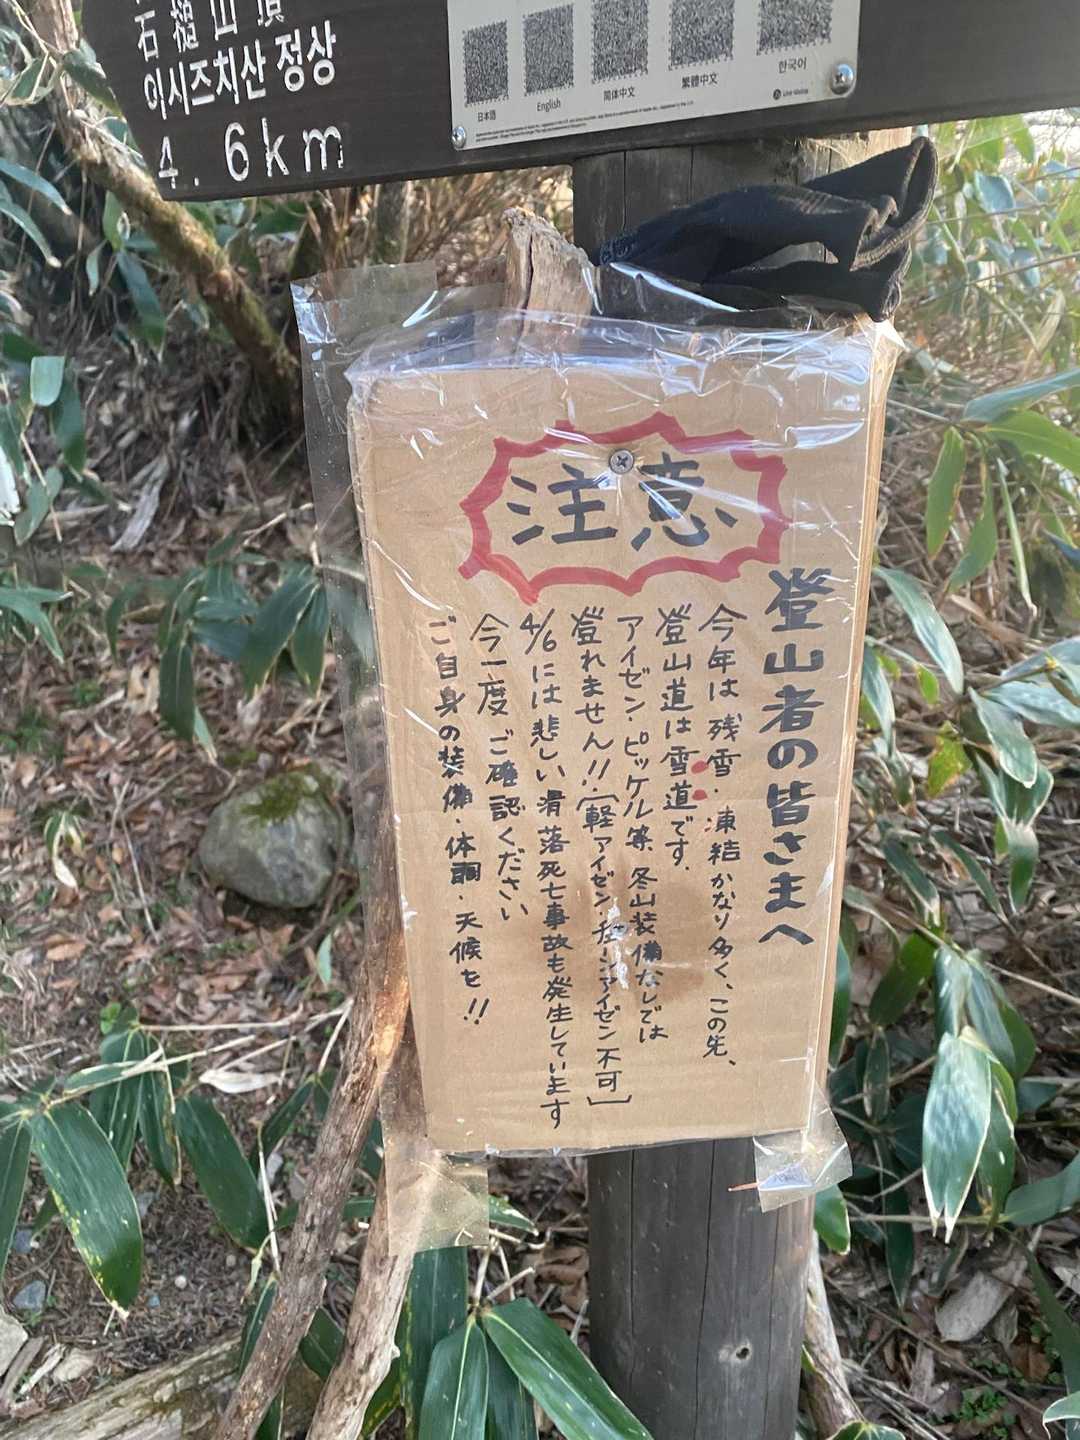 石鎚山頂
이시즈치산 정상
4.6km
日本語
English
简体中文
繁體中文
한국어
注意
登山者の皆さまへ
今年は残雪・凍結かなり多く、この先、
登山道は雪道です。
アイゼン・ピッケル等、冬山装備なしでは
登れません!!〔軽アイゼン・チェーンアイゼン不可〕
4/6には悲しい滑落死亡事故も発生しています
今一度ご確認ください
ご自身の装備・体調・天候を!!